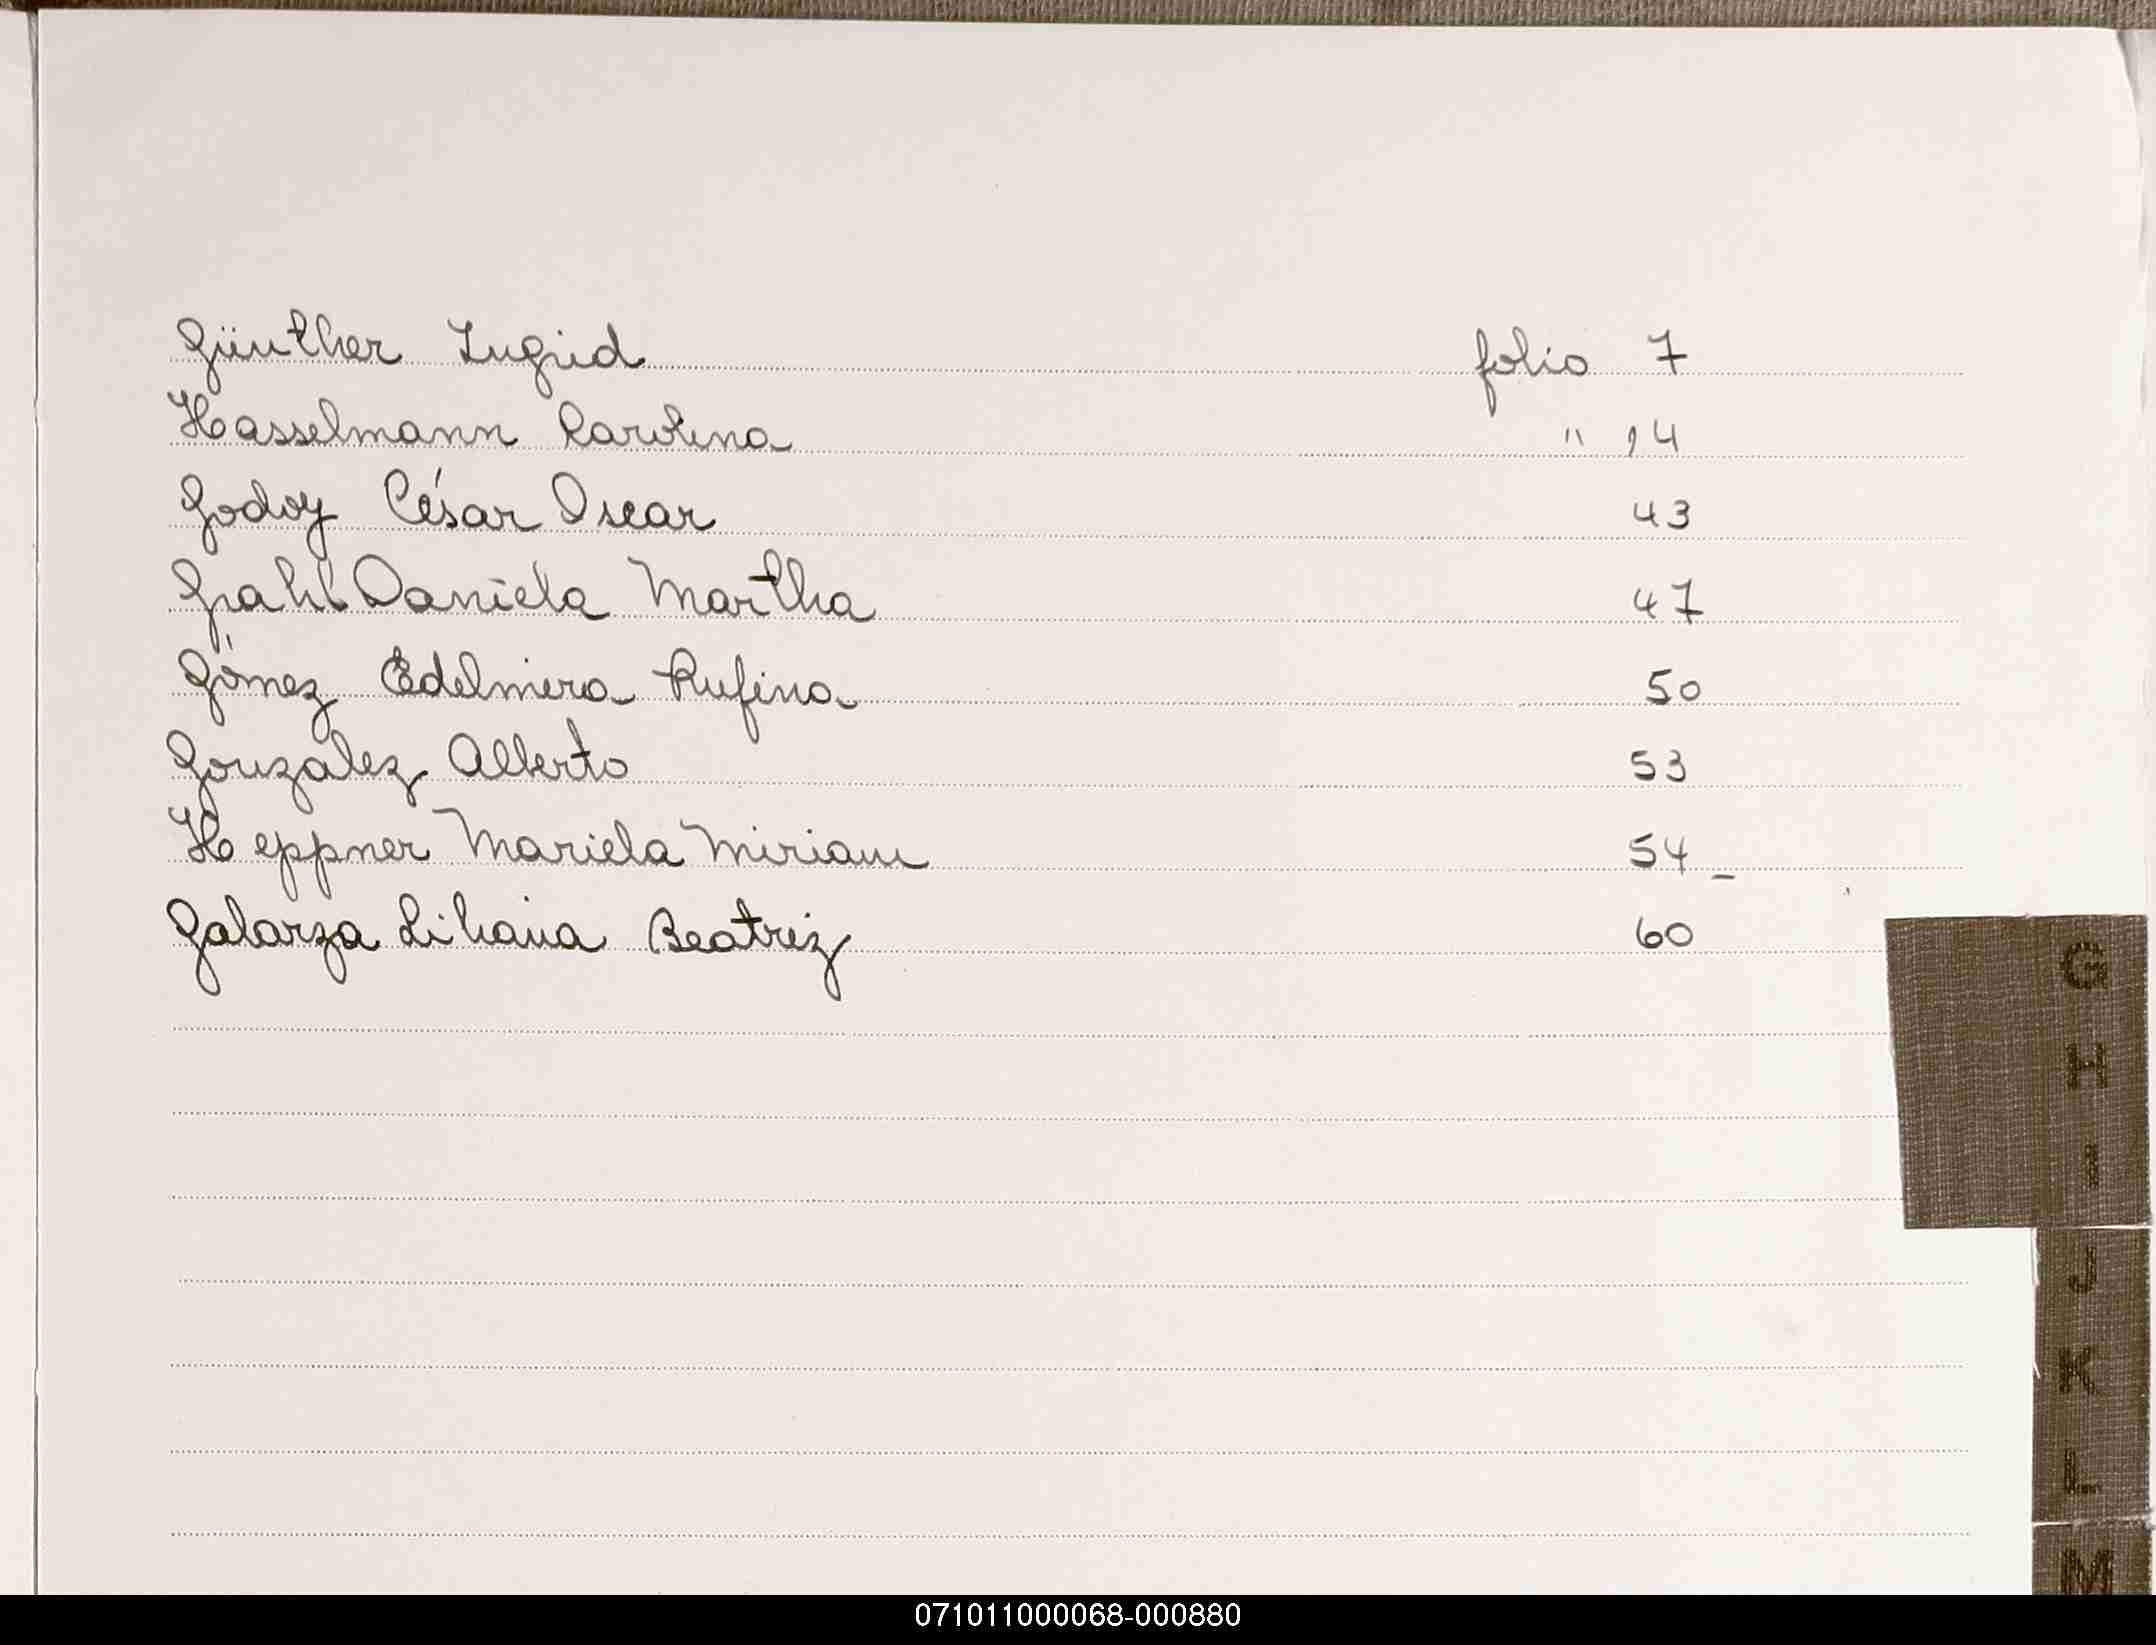 Günther Ingrid folio 7
Hasselmann Carolina " 14
Godoy César Oscar 43
Grahl Daniela Martha 47
Gómez Edelmira Rufina 50
Gonzalez Alberto 53
Heppner Mariela Miriam 54 -
Galarza Liliana Beatriz 60
G
H
I
J
K
L
M
071011000068-000880